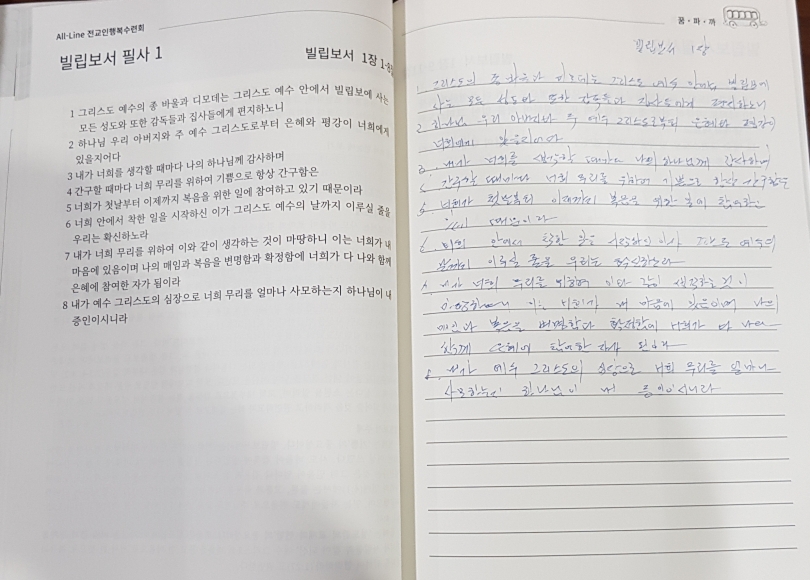 All-Line 전교인행복수련회
빌립보서 필사 1
빌립보서 1장 1-8
1 그리스도 예수의 종 바울과 디모데는 그리스도 예수 안에서 빌립보에 사는
모든 성도와 또한 감독들과 집사들에게 편지하노니
2 하나님 우리 아버지와 주 예수 그리스도로부터 은혜와 평강이 너희에게
있을지어다
3 내가 너희를 생각할 때마다 나의 하나님께 감사하며
4 간구할 때마다 너희 무리를 위하여 기쁨으로 항상 간구함은
5 너희가 첫날부터 이제까지 복음을 위한 일에 참여하고 있기 때문이라
6 너희 안에서 착한 일을 시작하신 이가 그리스도 예수의 날까지 이루실 줄을
우리는 확신하노라
7 내가 너희 무리를 위하여 이와 같이 생각하는 것이 마땅하니 이는 너희가 내
마음에 있음이며 나의 매임과 복음을 변명함과 확정함에 너희가 다 나와 함께
은혜에 참여한 자가 됨이라
8 내가 예수 그리스도의 심장으로 너희 무리를 얼마나 사모하는지 하나님이 내
증인이시니라
꿈·파·까
빌립보서 1장
1. 그리스도의 종 바울과 디모데는 그리스도 예수 안에서 빌립보에
사는 모든 성도와 또한 감독들과 집사들에게 편지하노니
2. 하나님 우리 아버지와 주 예수 그리스도로부터 은혜와 평강이
너희에게 있을지어다
3. 내가 너희를 생각할 때마다 나의 하나님께 감사하며
4. 간구할 때마다 너희 무리를 위하여 기쁨으로 항상 간구함은
5. 너희가 첫날부터 이제까지 복음을 위한 일에 참여하고
있기 때문이라
6. 너희 안에서 착한 일을 시작하신 이가 예수의
날까지 이루실 줄을 우리는 확신하노라
7. 내가 너희 무리를 위하여 이와 같이 생각하는 것이
이는 너희가 내 마음에 있음이며 나의
매임과 복음을 변명함과 확정함에 너희가 다 나와
함께 은혜에 참여한 자가 됨이라
8. 내가 예수 그리스도의 심장으로 너희 무리를 얼마나
사모하는지 하나님이 내 증인이시니라